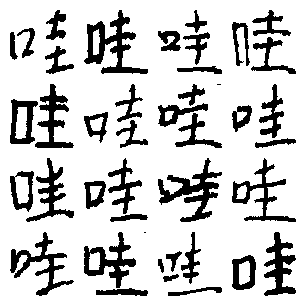 哇哇哇哇
哇哇哇哇
哇哇哇哇
哇哇哇哇